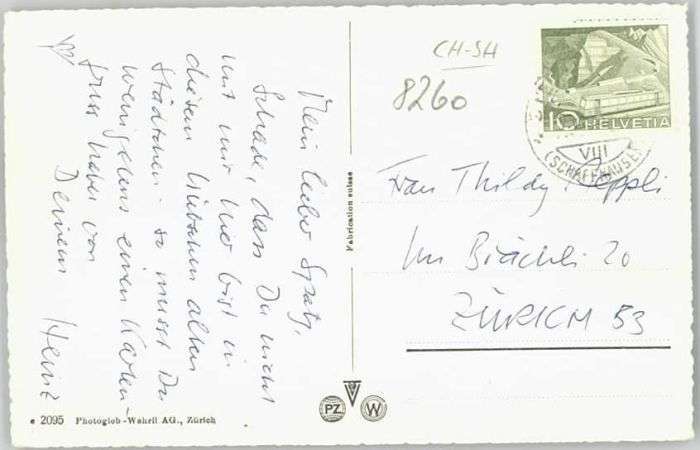 Mein lieber Spatz,
Schade, dass Du nicht
mit mir hier bist in
diesem hübschen alten
Städtchen. So musst Du
wenigstens einen Karten
Gruss haben von
Deinem Heinz
CH-SH
8260
10 HELVETIA
VIII
(SCHAFFHAUSEN)
Frau Thildy Aeppli
Im Brächli 20
ZÜRICH 53
Fabrication suisse
PZ
W
e 2095 Photoglob-Wehrli AG., Zürich